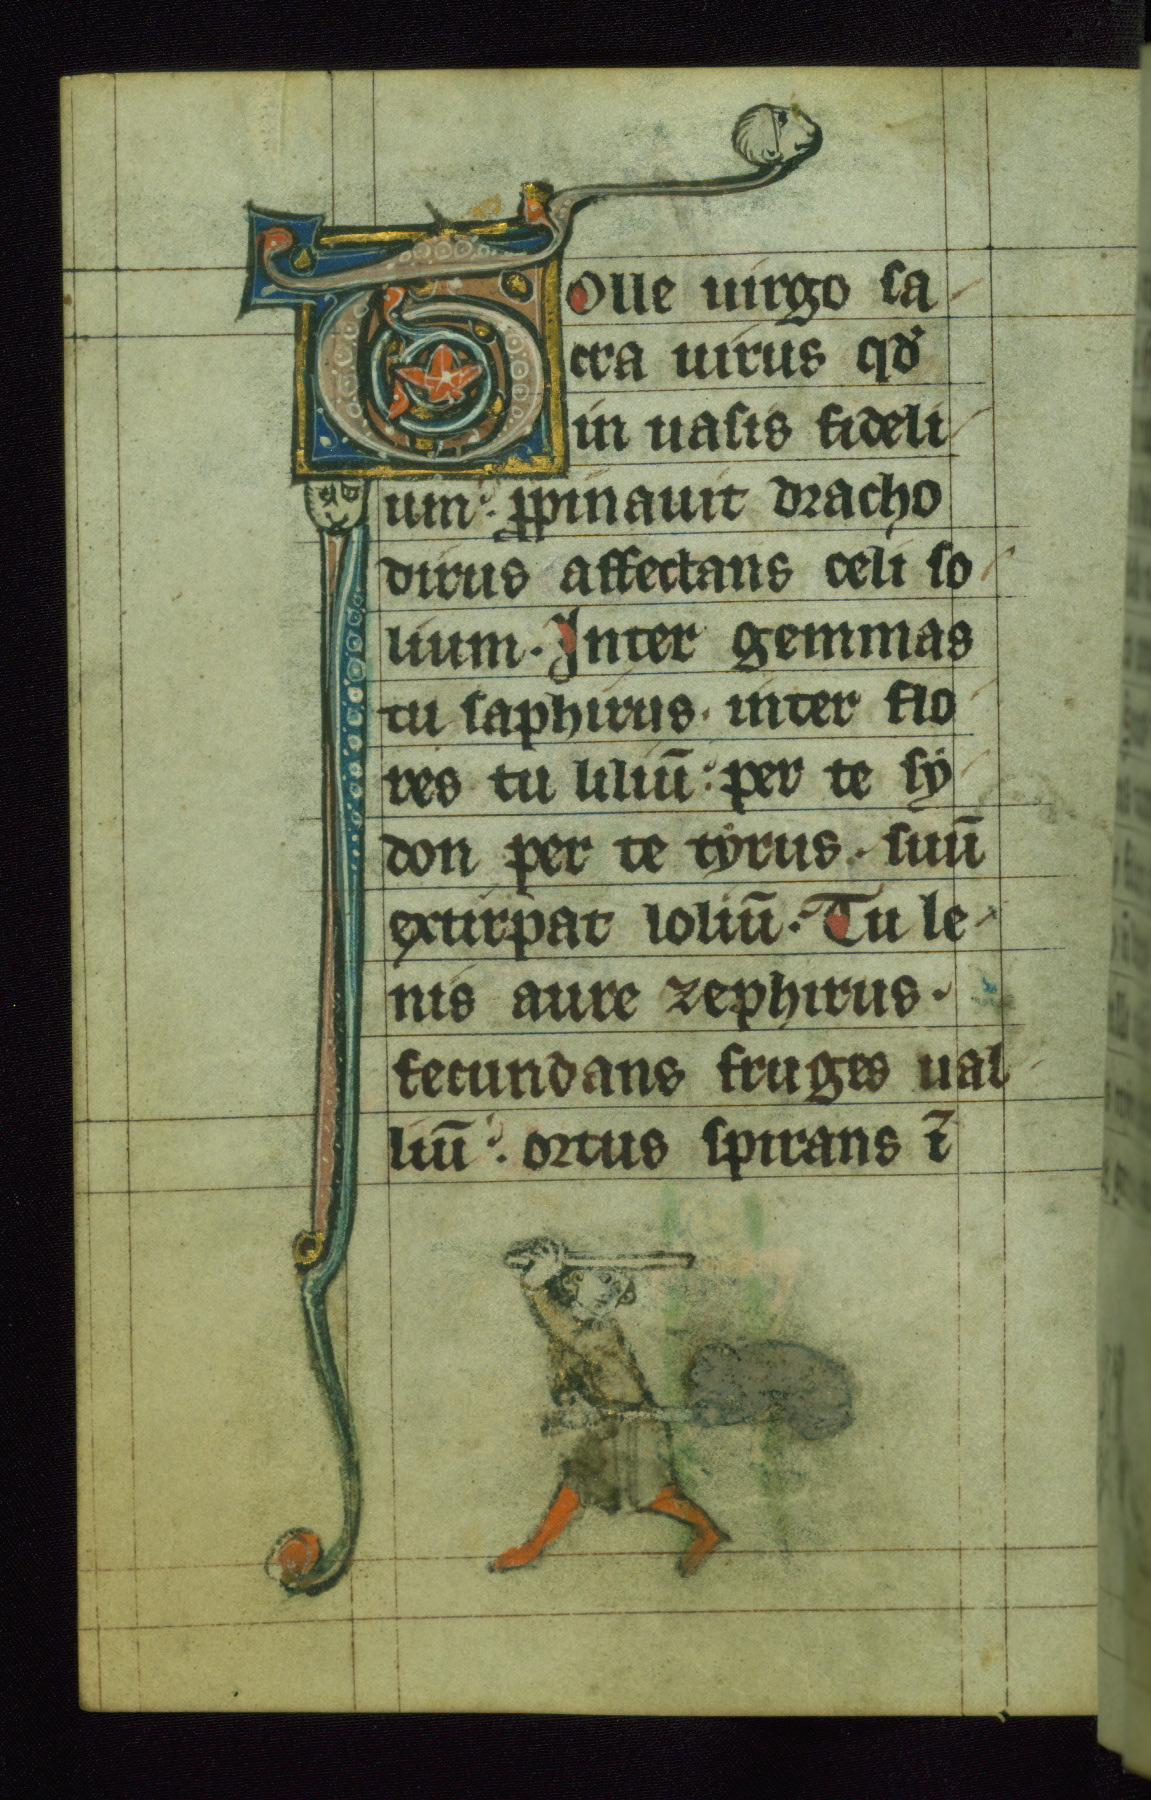 Tolle uirgo sa
cra uirus qđ
in uasis fideli
um. ꝓpinauit dracho
dirus affectans celi so
lium. Inter gemmas
tu saphirus. inter flo
res tu liliū. per te sẏ
don per te tẏrus. suū
extirpat loliū. Tu le
nis aure zephirus.
fecundans fruges ual
liū. ortus spirans ī